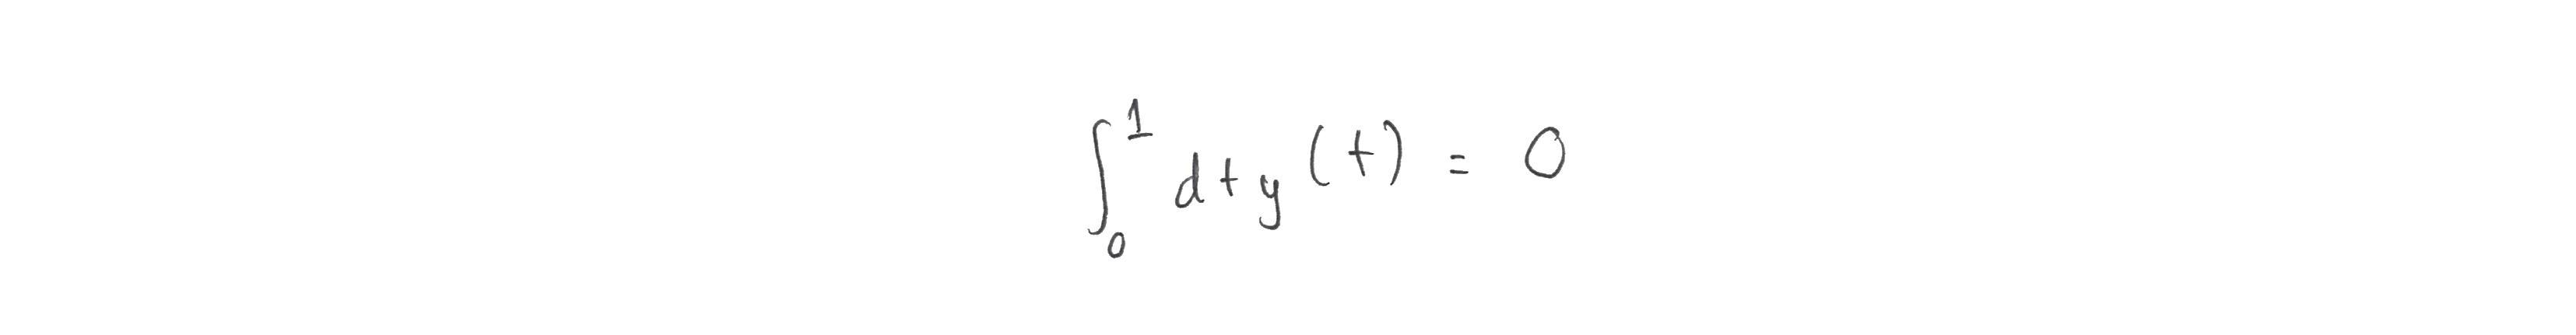 ∫₀¹ dt y(t) = 0